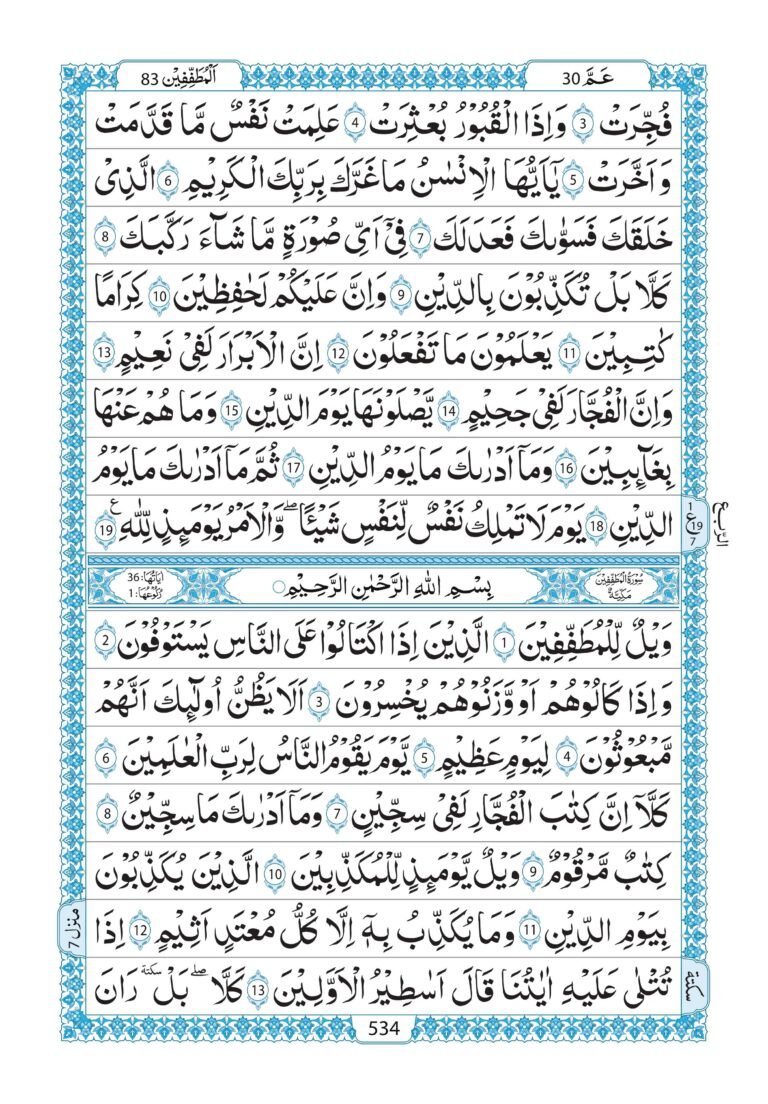 عَمَّ 30
اَلْمُطَفِّفِيْن 83
فُجِّرَتْ 3 وَاِذَا الْقُبُوْرُ بُعْثِرَتْ 4 عَلِمَتْ نَفْسٌ مَّا قَدَّمَتْ
وَاَخَّرَتْ 5 يٰۤاَيُّهَا الْاِنْسٰنُ مَا غَرَّكَ بِرَبِّكَ الْكَرِيْمِ 6 الَّذِيْ
خَلَقَكَ فَسَوّٰىكَ فَعَدَلَكَ 7 فِيْۤ اَيِّ صُوْرَةٍ مَّا شَآءَ رَكَّبَكَ 8
كَلَّا بَلْ تُكَذِّبُوْنَ بِالدِّيْنِ 9 وَاِنَّ عَلَيْكُمْ لَحٰفِظِيْنَ 10 كِرَامًا
كٰتِبِيْنَ 11 يَعْلَمُوْنَ مَا تَفْعَلُوْنَ 12 اِنَّ الْاَبْرَارَ لَفِيْ نَعِيْمٍ 13
وَاِنَّ الْفُجَّارَ لَفِيْ جَحِيْمٍ 14 يَّصْلَوْنَهَا يَوْمَ الدِّيْنِ 15 وَمَا هُمْ عَنْهَا
بِغَآئِبِيْنَ 16 وَمَاۤ اَدْرٰىكَ مَا يَوْمُ الدِّيْنِ 17 ثُمَّ مَاۤ اَدْرٰىكَ مَا يَوْمُ
الدِّيْنِ 18 يَوْمَ لَا تَمْلِكُ نَفْسٌ لِّنَفْسٍ شَيْـًٔا ۖ وَّالْاَمْرُ يَوْمَئِذٍ لِّلّٰهِ 19 ع
الرّبع
1
ع 19
7
سُوْرَةُ الْمُطَفِّفِيْنَ
مَكِّيَّةٌ
بِسْمِ اللّٰهِ الرَّحْمٰنِ الرَّحِيْمِ
اٰيَاتُهَا: 36
رُكُوْعُهَا: 1
وَيْلٌ لِّلْمُطَفِّفِيْنَ 1 الَّذِيْنَ اِذَا اكْتَالُوْا عَلَى النَّاسِ يَسْتَوْفُوْنَ 2
وَاِذَا كَالُوْهُمْ اَوْ وَّزَنُوْهُمْ يُخْسِرُوْنَ 3 اَلَا يَظُنُّ اُولٰٓئِكَ اَنَّهُمْ
مَّبْعُوْثُوْنَ 4 لِيَوْمٍ عَظِيْمٍ 5 يَّوْمَ يَقُوْمُ النَّاسُ لِرَبِّ الْعٰلَمِيْنَ 6
كَلَّاۤ اِنَّ كِتٰبَ الْفُجَّارِ لَفِيْ سِجِّيْنٍ 7 وَمَاۤ اَدْرٰىكَ مَا سِجِّيْنٌ 8
كِتٰبٌ مَّرْقُوْمٌ 9 وَيْلٌ يَّوْمَئِذٍ لِّلْمُكَذِّبِيْنَ 10 الَّذِيْنَ يُكَذِّبُوْنَ
بِيَوْمِ الدِّيْنِ 11 وَمَا يُكَذِّبُ بِهٖۤ اِلَّا كُلُّ مُعْتَدٍ اَثِيْمٍ 12 اِذَا
منزل 7
تُتْلٰى عَلَيْهِ اٰيٰتُنَا قَالَ اَسٰطِيْرُ الْاَوَّلِيْنَ 13 كَلَّا ۖ بَلْ سكتة رَانَ
سكتة
534